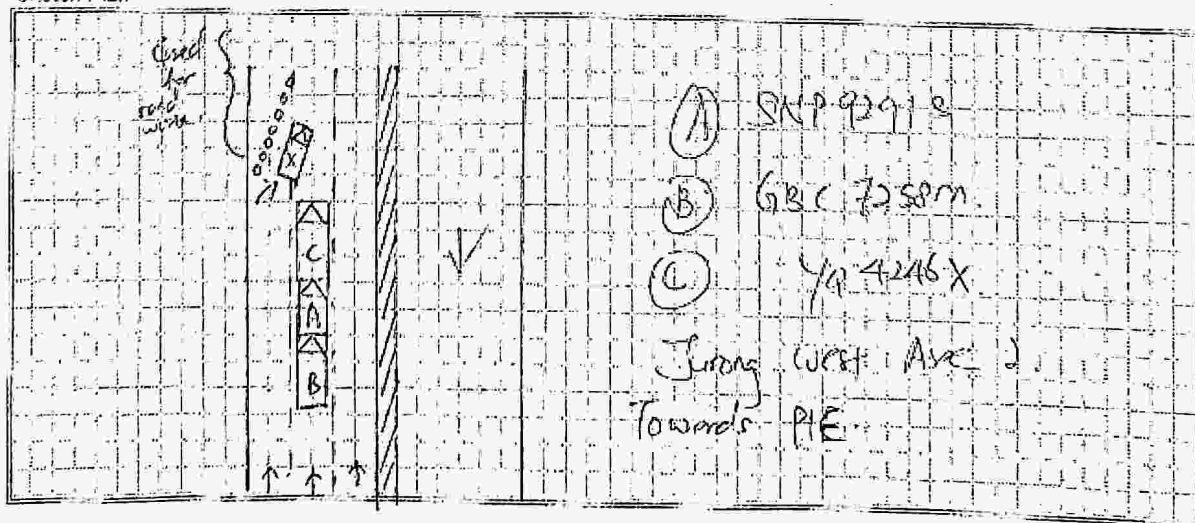 closed
for
road
work
X
C
A
B
A SNP 9291 S
B GBC 7258M.
C YQ 4246X
Jurong West Ave 2.
Towards PIE